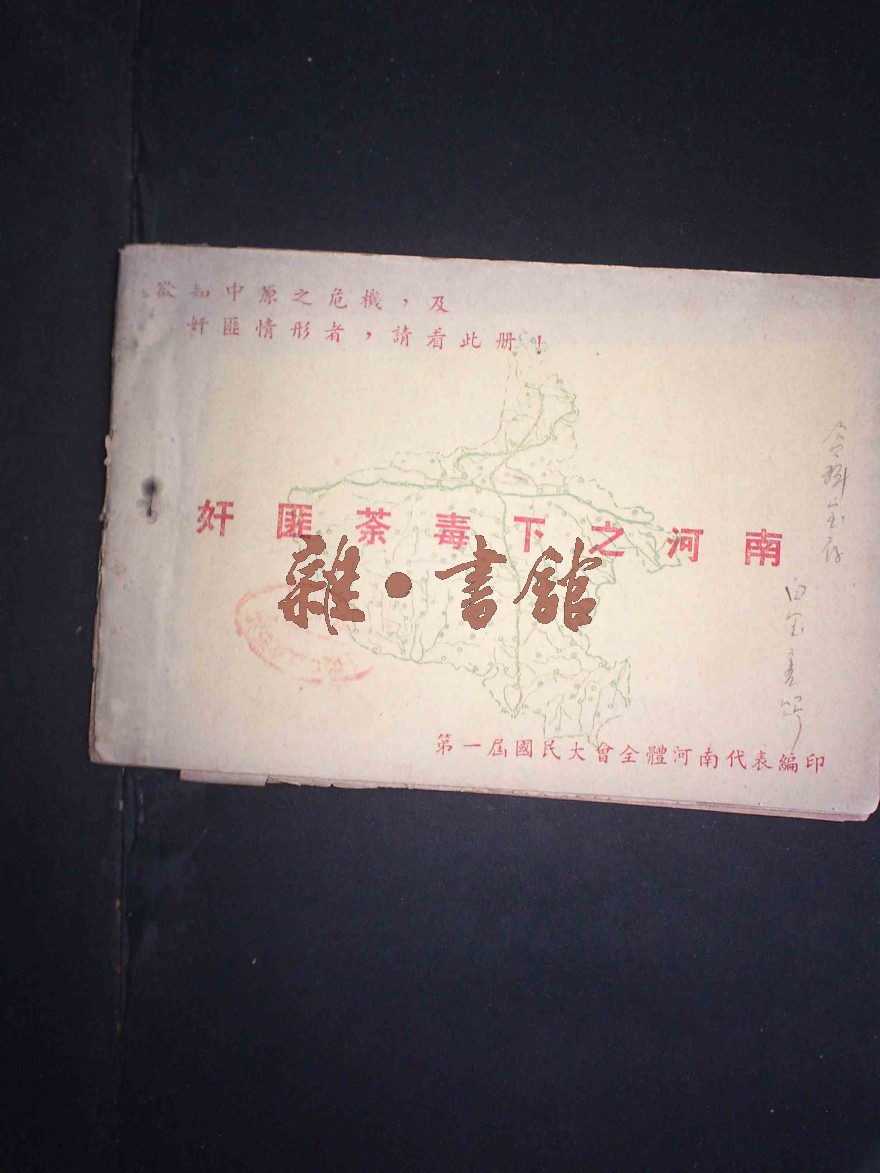 欲知中原之危機，及
奸匪情形者，請看此册！
奸匪荼毒下之河南
雜·書館
第一屆國民大會全體河南代表編印